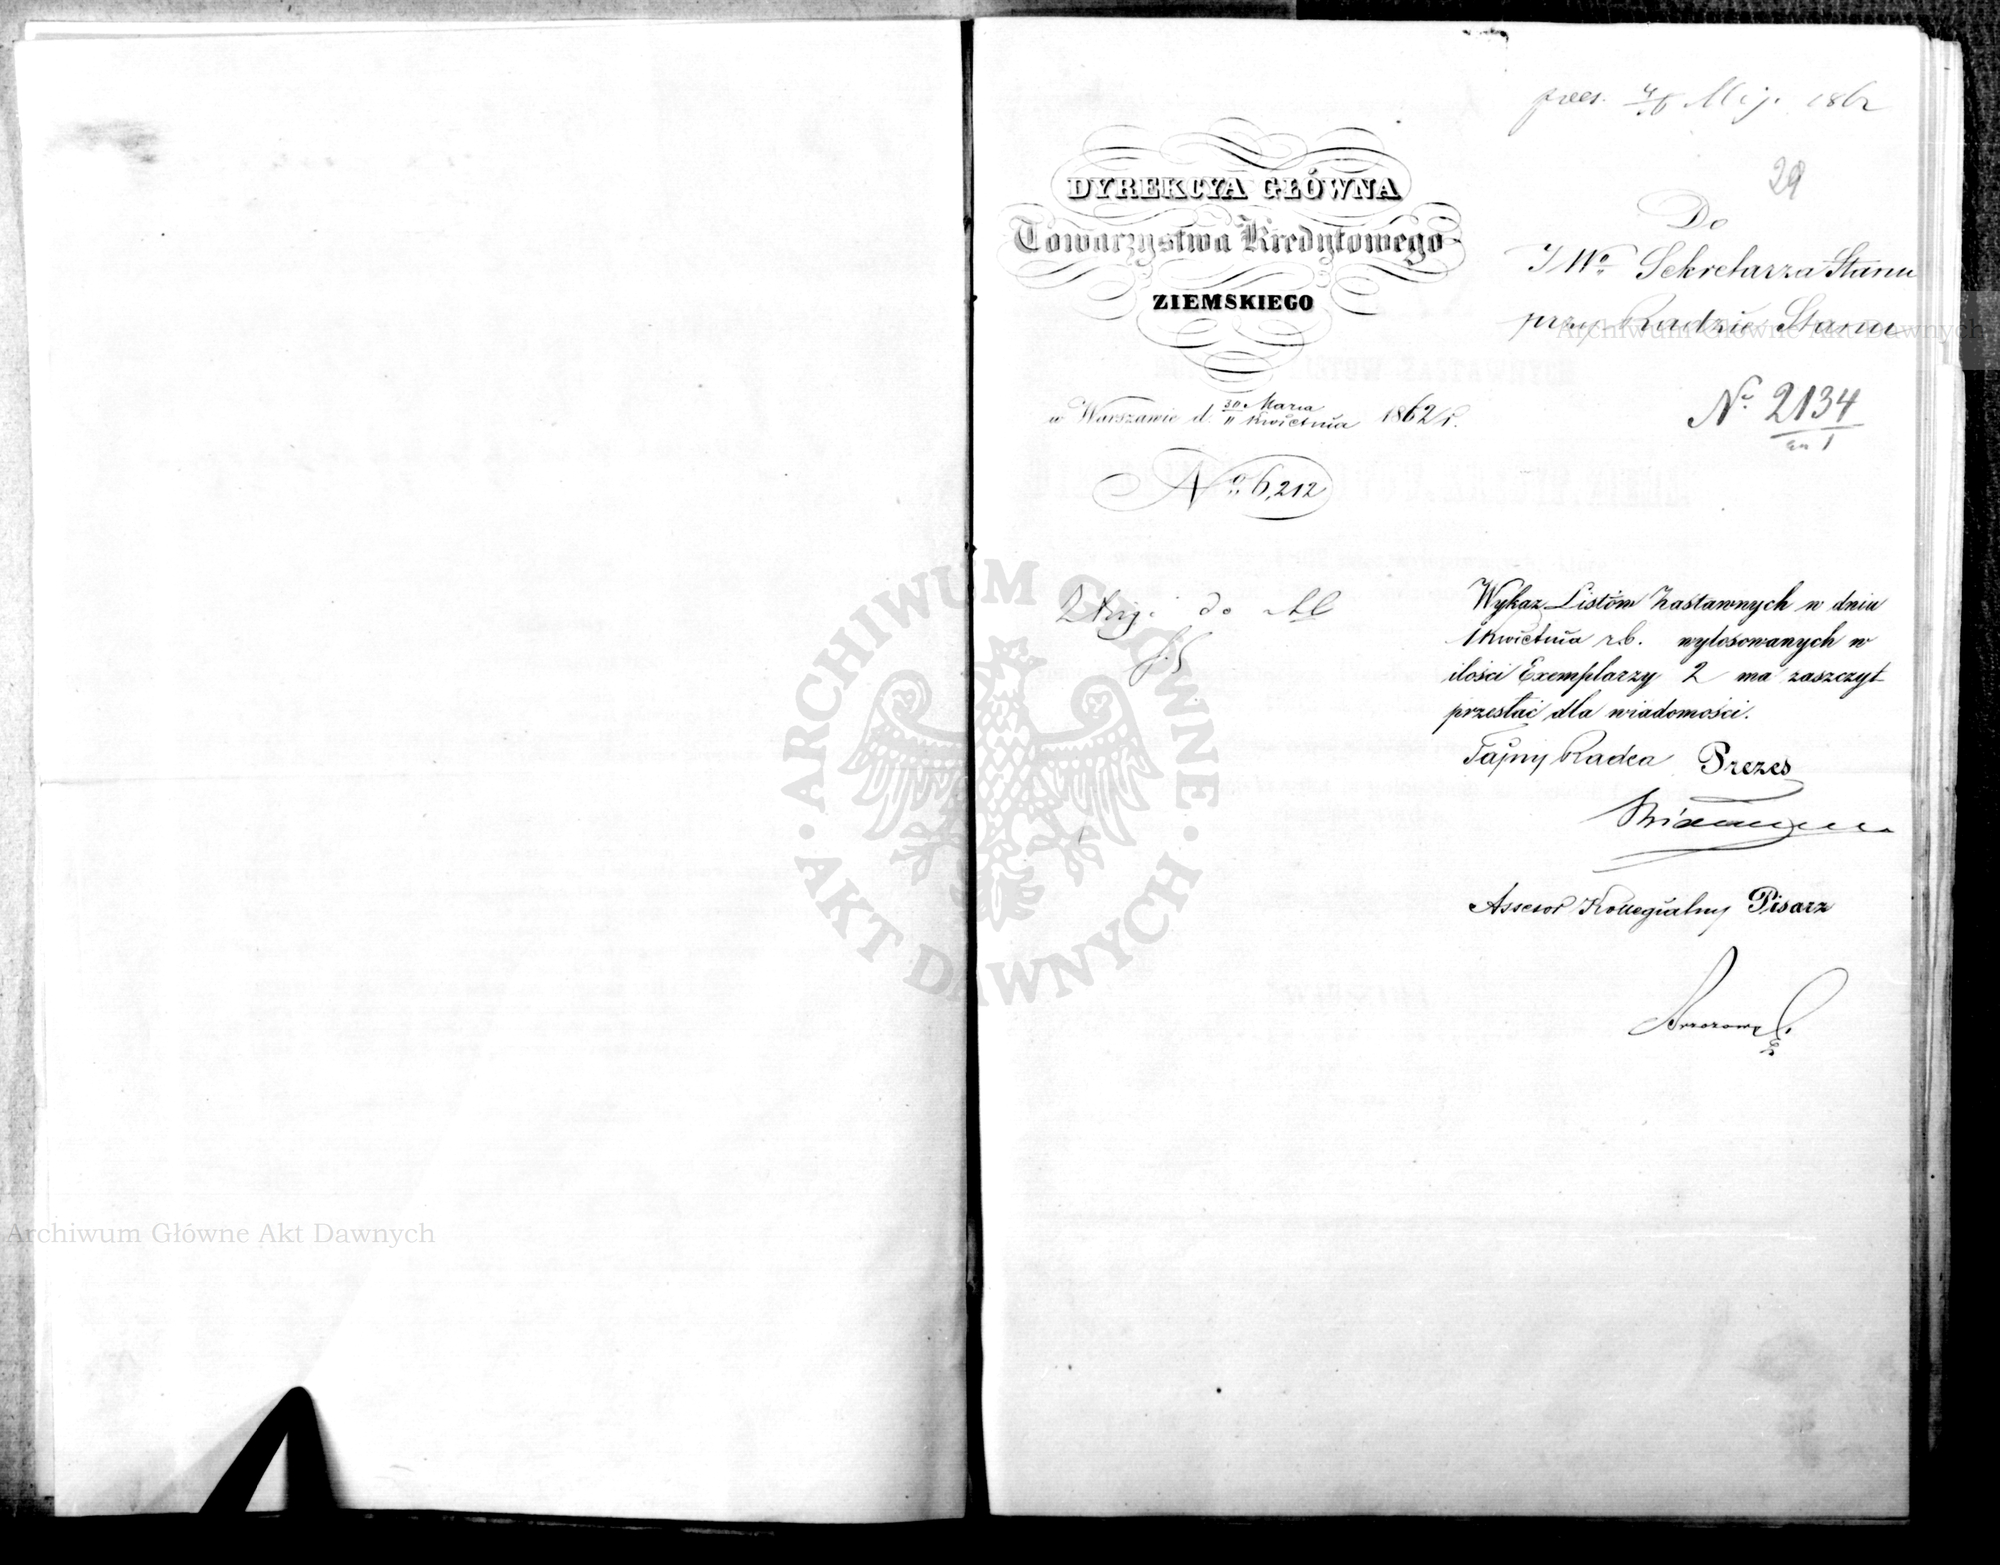 29
DYREKCYA GŁÓWNA
Towarzystwa Kredytowego
ZIEMSKIEGO
w Warszawie d. 30 Marca / 11 Kwietnia 1862 r.
No 6,212
Do
JWo Sekretarza Stanu
przy Radzie Stanu
No 2134
Wykaz Listów Zastawnych w dniu
1 Kwietnia r.b. wylosowanych w
ilości Exemplarzy 2 ma zaszczyt
przesłać dla wiadomości.
Tajny Radca Prezes
Assesor Kollegialny Pisarz
Archiwum Główne Akt Dawnych
ARCHIWUM GŁÓWNE AKT DAWNYCH
Archiwum Główne Akt Dawnych